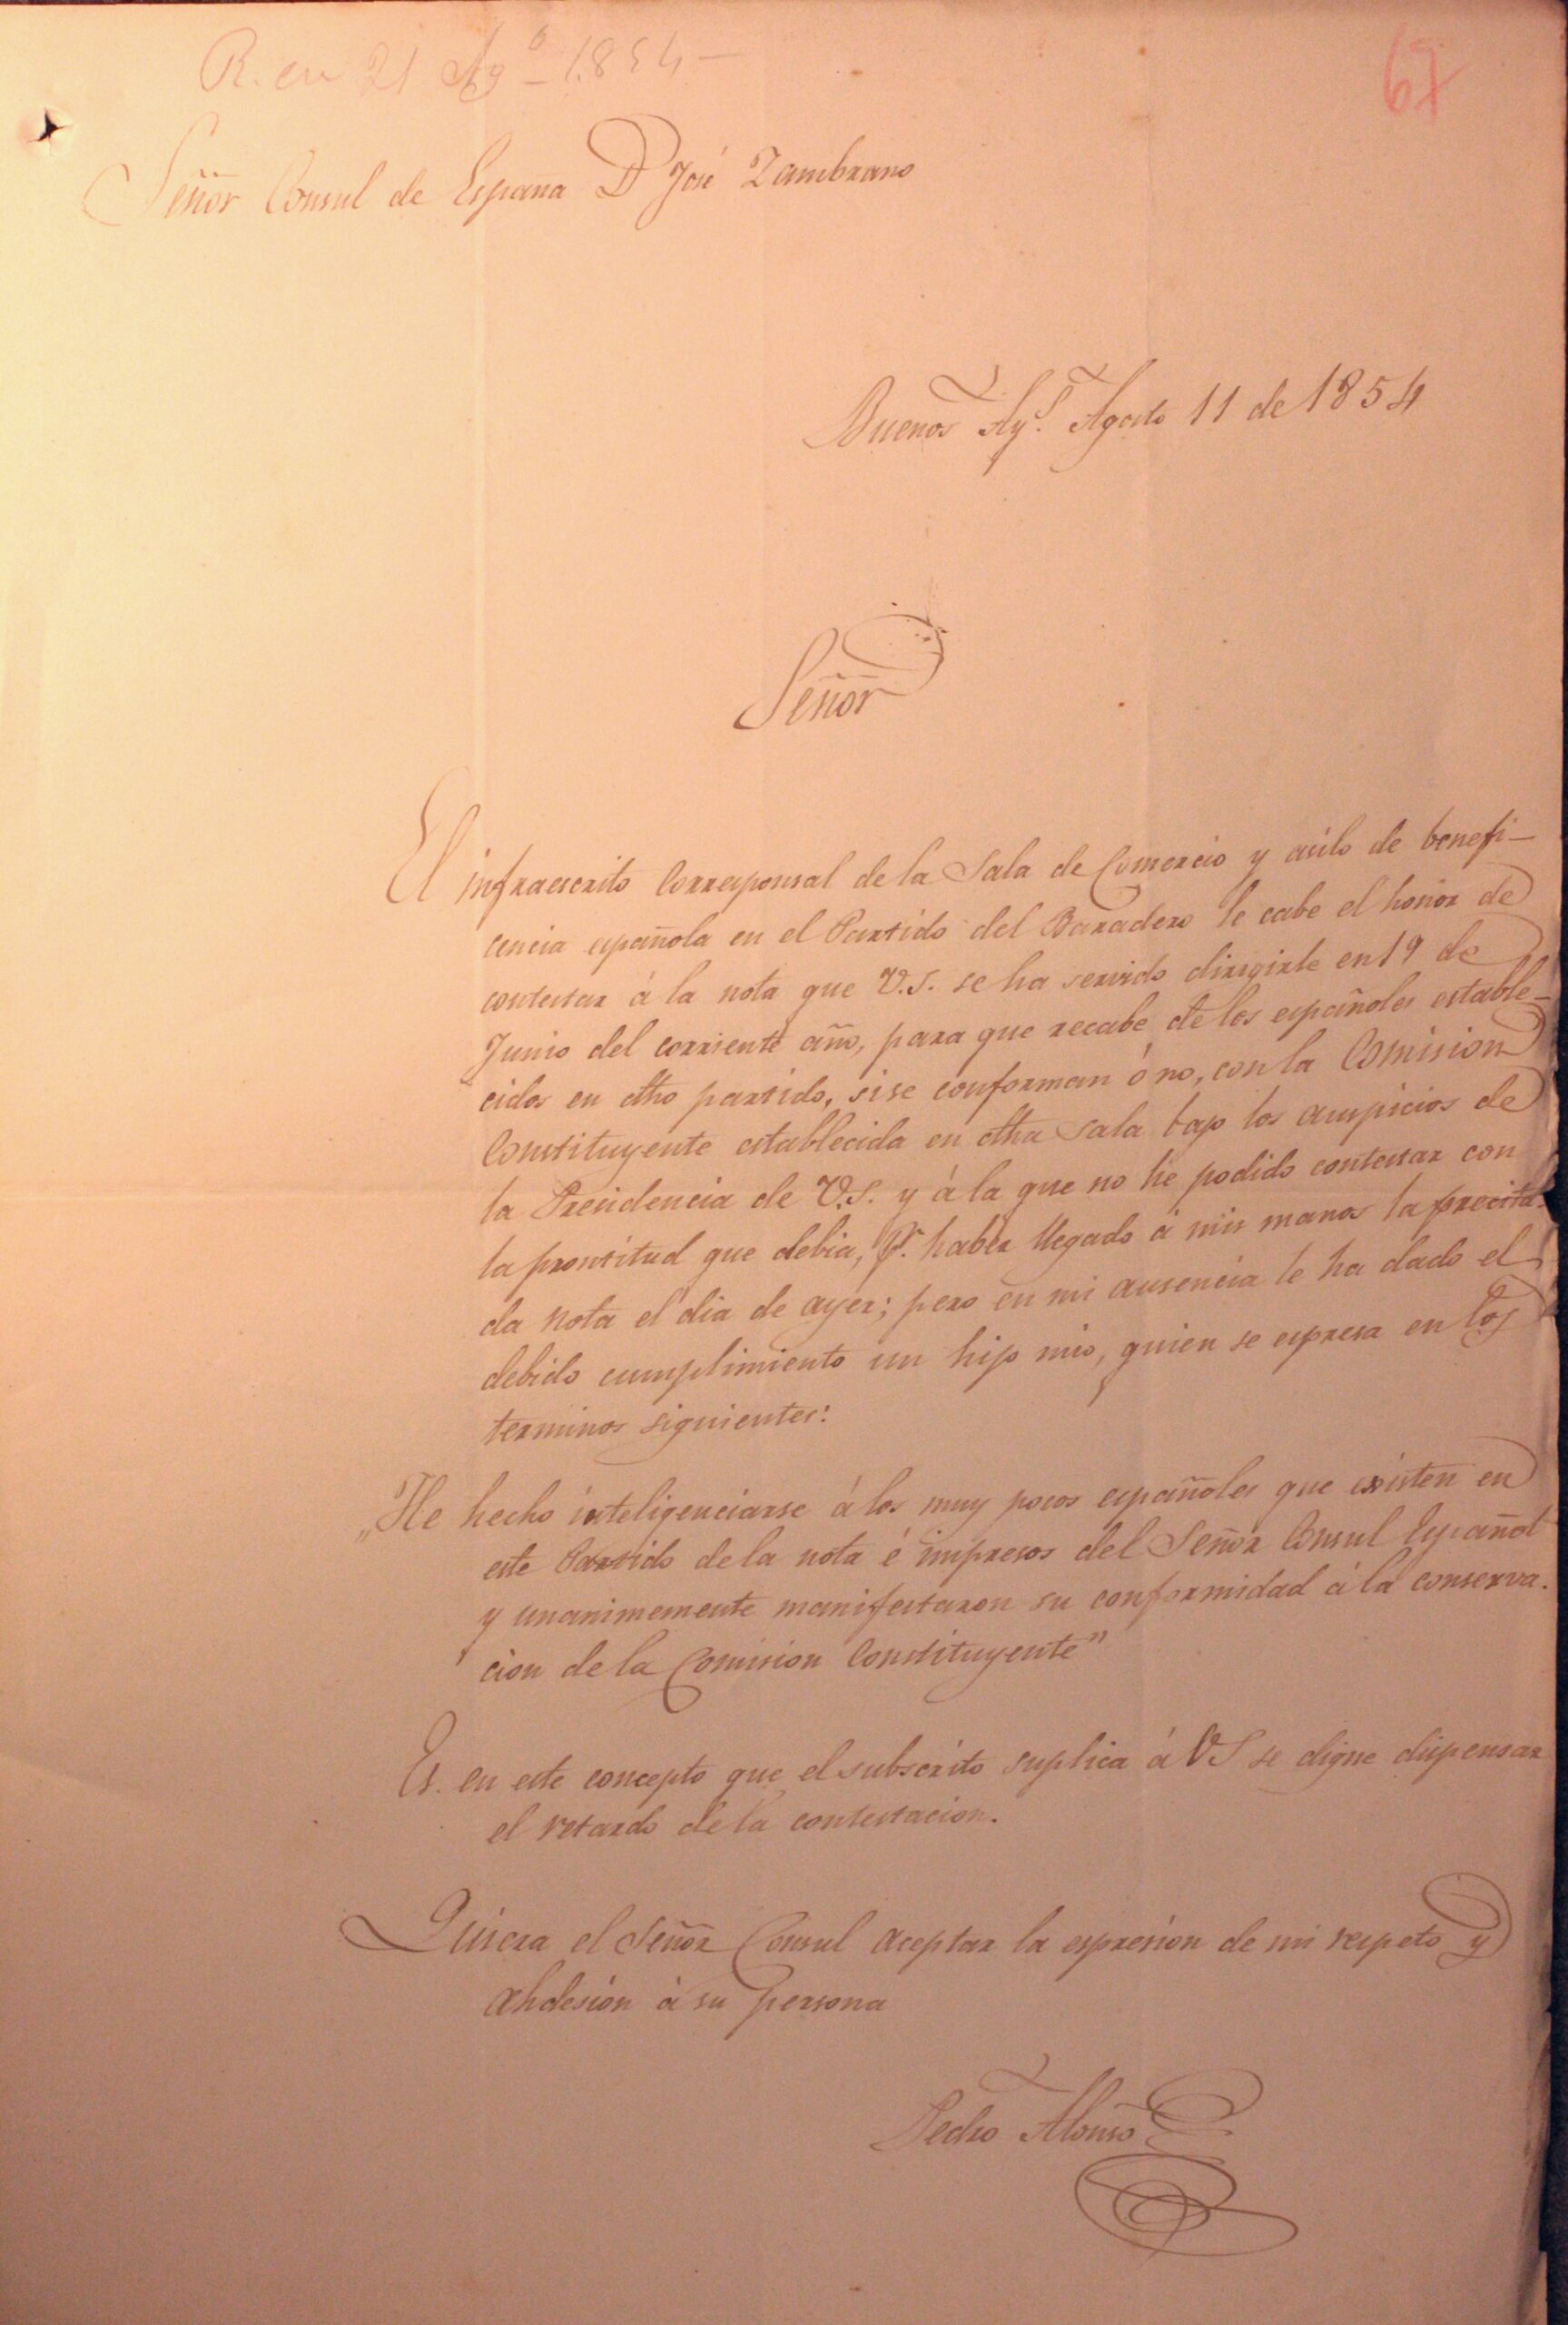 R. en 21 Agº 1854 -
67
Señor Consul de España D José Zambrano
Buenos Ays. Agosto 11 de 1854
Señor
El infraescrito Corresponsal de la Sala de Comercio y asilo de benefi-
cencia española en el Partido del Baradero le cabe el honor de
contestar á la nota que V.S. se ha servido dirigirle en 19 de
Junio del corriente año, para que recabe de los españoles estable-
cidos en dho partido, si se conforman ó no, con la Comision
Constituyente establecida en dha Sala bajo los auspicios de
la Presidencia de V.S. y á la que no he podido contestar con
la prontitud que debia, pr. haber llegado á mis manos la precita-
da nota el dia de ayer; pero en mi ausencia le ha dado el
debido cumplimiento un hijo mio, quien se espresa en los
terminos siguientes:
„He hecho inteligenciarse á los muy pocos españoles que existen en
este Partido de la nota é impresos del Señor Consul Español
y unanimemente manifestaron su conformidad á la conserva-
cion de la Comision Constituyente"
Es. en este concepto que el subscrito suplica á VS se digne dispensar
el retardo de la contestacion.
Quiera el Señor Consul aceptar la espresion de mi respeto y
ahdesion á su persona
Pedro Alonso